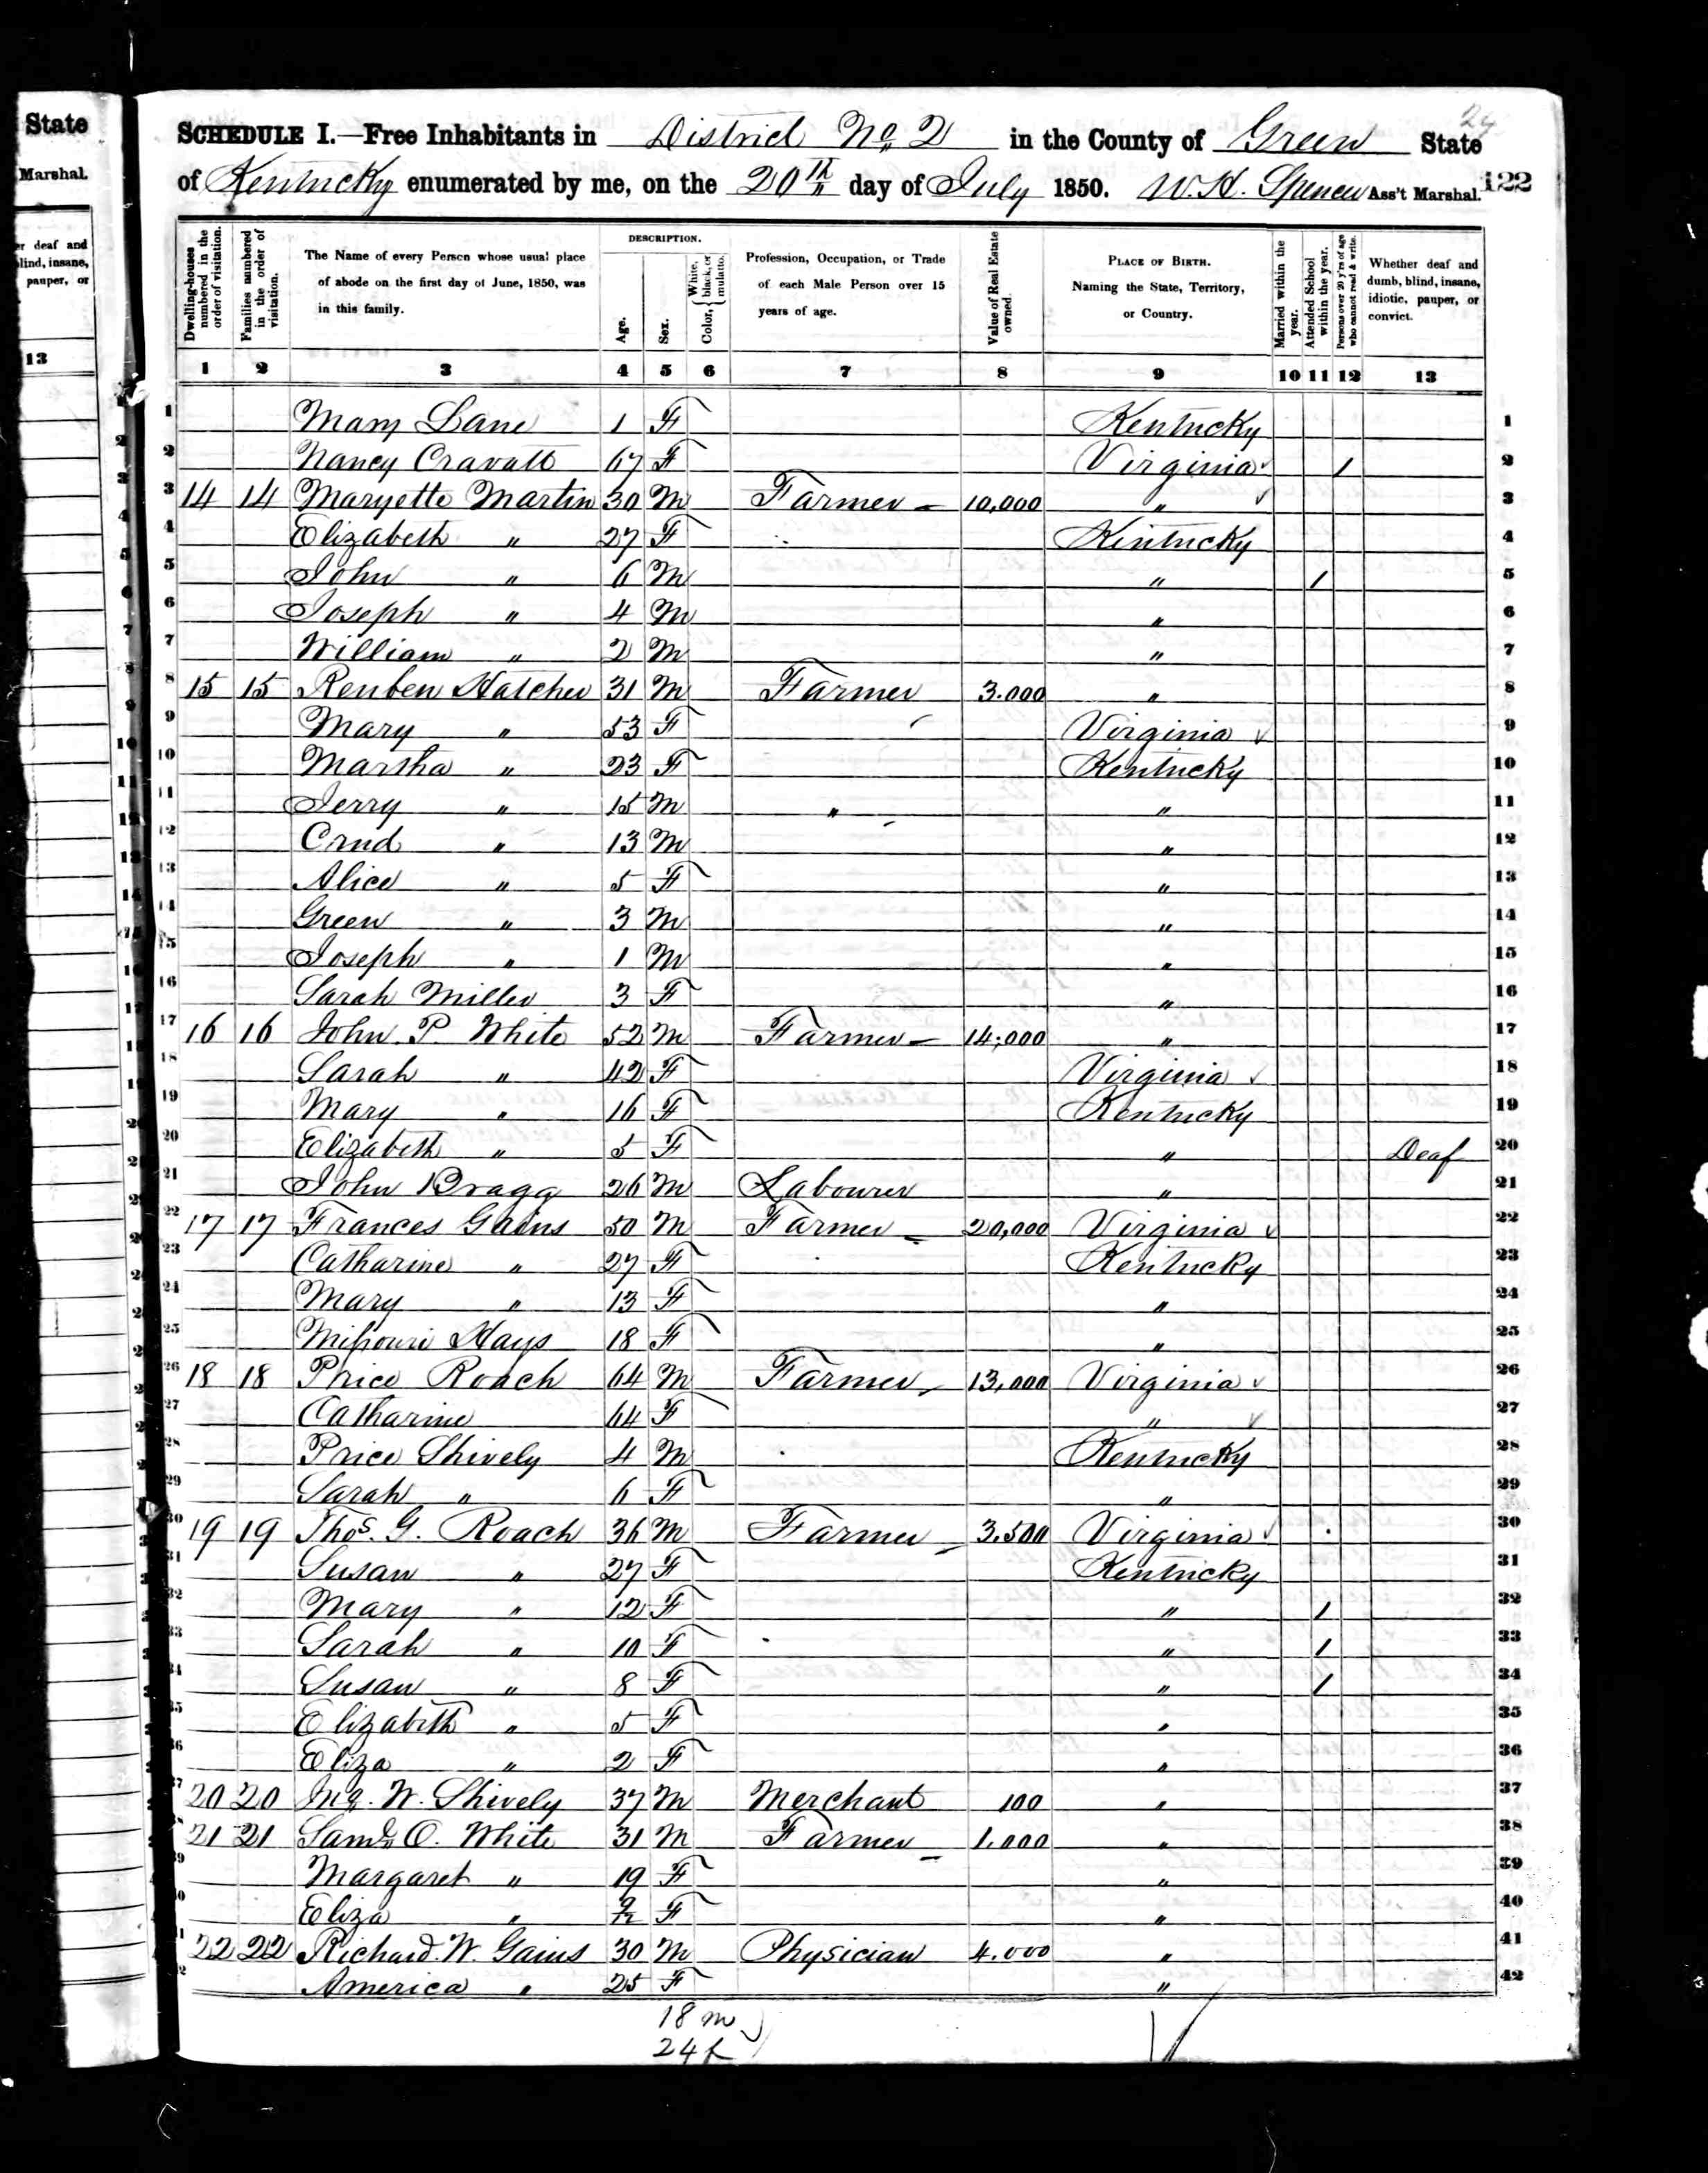 State
Marshal.
er deaf and
blind, insane,
pauper, or
13
24
SCHEDULE I.—Free Inhabitants in District No 2 in the County of Green State
of Kentucky enumerated by me, on the 20th day of July 1850. W. H. Spencer Ass't Marshal. 122
Dwelling-houses numbered in the order of visitation.
Families numbered in the order of visitation.
The Name of every Person whose usual place of abode on the first day of June, 1850, was in this family.
DESCRIPTION.
Age.
Sex.
Color, { White, black, or mulatto.
Profession, Occupation, or Trade of each Male Person over 15 years of age.
Value of Real Estate owned.
PLACE OF BIRTH. Naming the State, Territory, or Country.
Married within the year.
Attended School within the year.
Persons over 20 y'rs of age who cannot read & write.
Whether deaf and dumb, blind, insane, idiotic, pauper, or convict.
1 2 3 4 5 6 7 8 9 10 11 12 13
1 Mary Lane 1 F Kentucky 1
2 Nancy Cravatt 67 F Virginia / 2
3 14 14 Maryette Martin 30 M Farmer 10,000 " 3
4 Elizabeth " 27 F Kentucky 4
5 John " 6 M " / 5
6 Joseph " 4 M " 6
7 William " 2 M " 7
8 15 15 Reuben Hatcher 31 M Farmer 3.000 " 8
9 Mary " 53 F Virginia 9
10 Martha " 23 F Kentucky 10
11 Jerry " 15 M " " 11
12 " 13 M " 12
13 Alice " 5 F " 13
14 Green " 3 M " 14
15 Joseph " 1 M " 15
16 Sarah Miller 3 F " 16
17 16 16 John P. White 52 M Farmer 14,000 " 17
18 Sarah " 42 F Virginia 18
19 Mary " 16 F Kentucky 19
20 Elizabeth " 5 F " Deaf 20
21 John Bragg 26 M Labourer " 21
22 17 17 Frances Gains 50 M Farmer 20,000 Virginia 22
23 Catharine " 27 F Kentucky 23
24 Mary " 13 F " 24
25 Missouri Hays 18 F " 25
26 18 18 Price Roach 64 M Farmer 13,000 Virginia 26
27 Catharine 64 F " 27
28 Price Shively 4 M Kentucky 28
29 Sarah " 6 F " 29
30 19 19 Thos. G. Roach 36 M Farmer 3.500 Virginia 30
31 Susan " 27 F Kentucky 31
32 Mary " 12 F " / 32
33 Sarah " 10 F " / 33
34 Susan " 8 F " / 34
35 Elizabeth " 5 F " 35
36 Eliza " 2 F " 36
37 20 20 Jno. W. Shively 37 M Merchant 100 " 37
21 21 Saml. O. White 31 M Farmer 1.000 " 38
Margaret " 19 F " 39
Eliza " F " 40
22 22 Richard W. Gains 30 M Physician 4.000 " 41
America " 25 F " 42
18 m
24 f